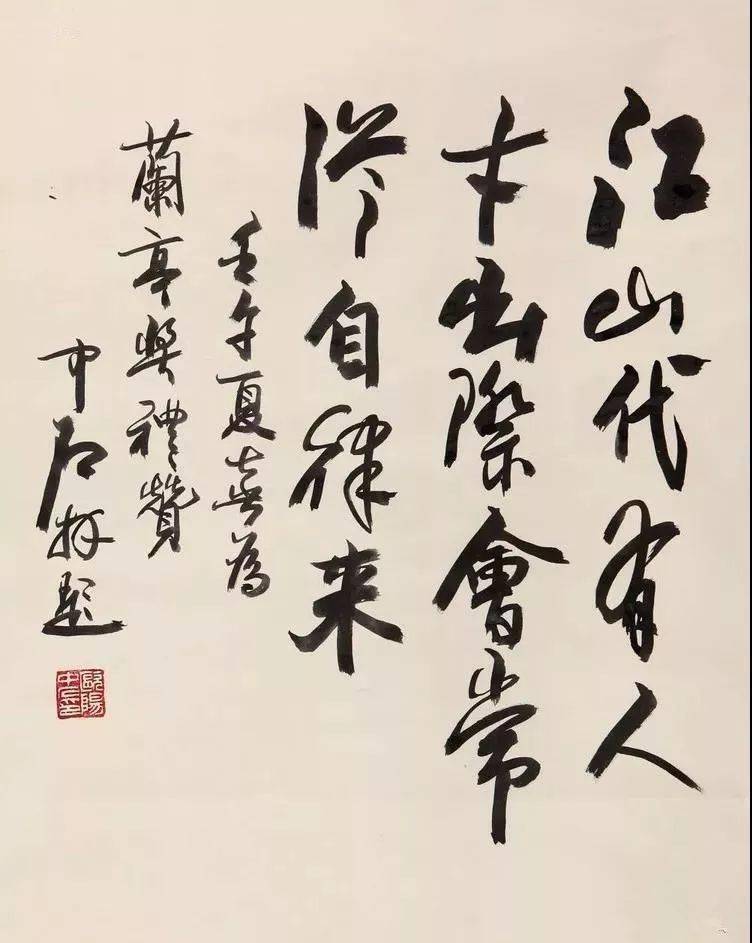 江山代有人
才出際會常
從自律来
壬午夏喜為
蘭亭獎禮贊
中石拜題
歐陽
中石印